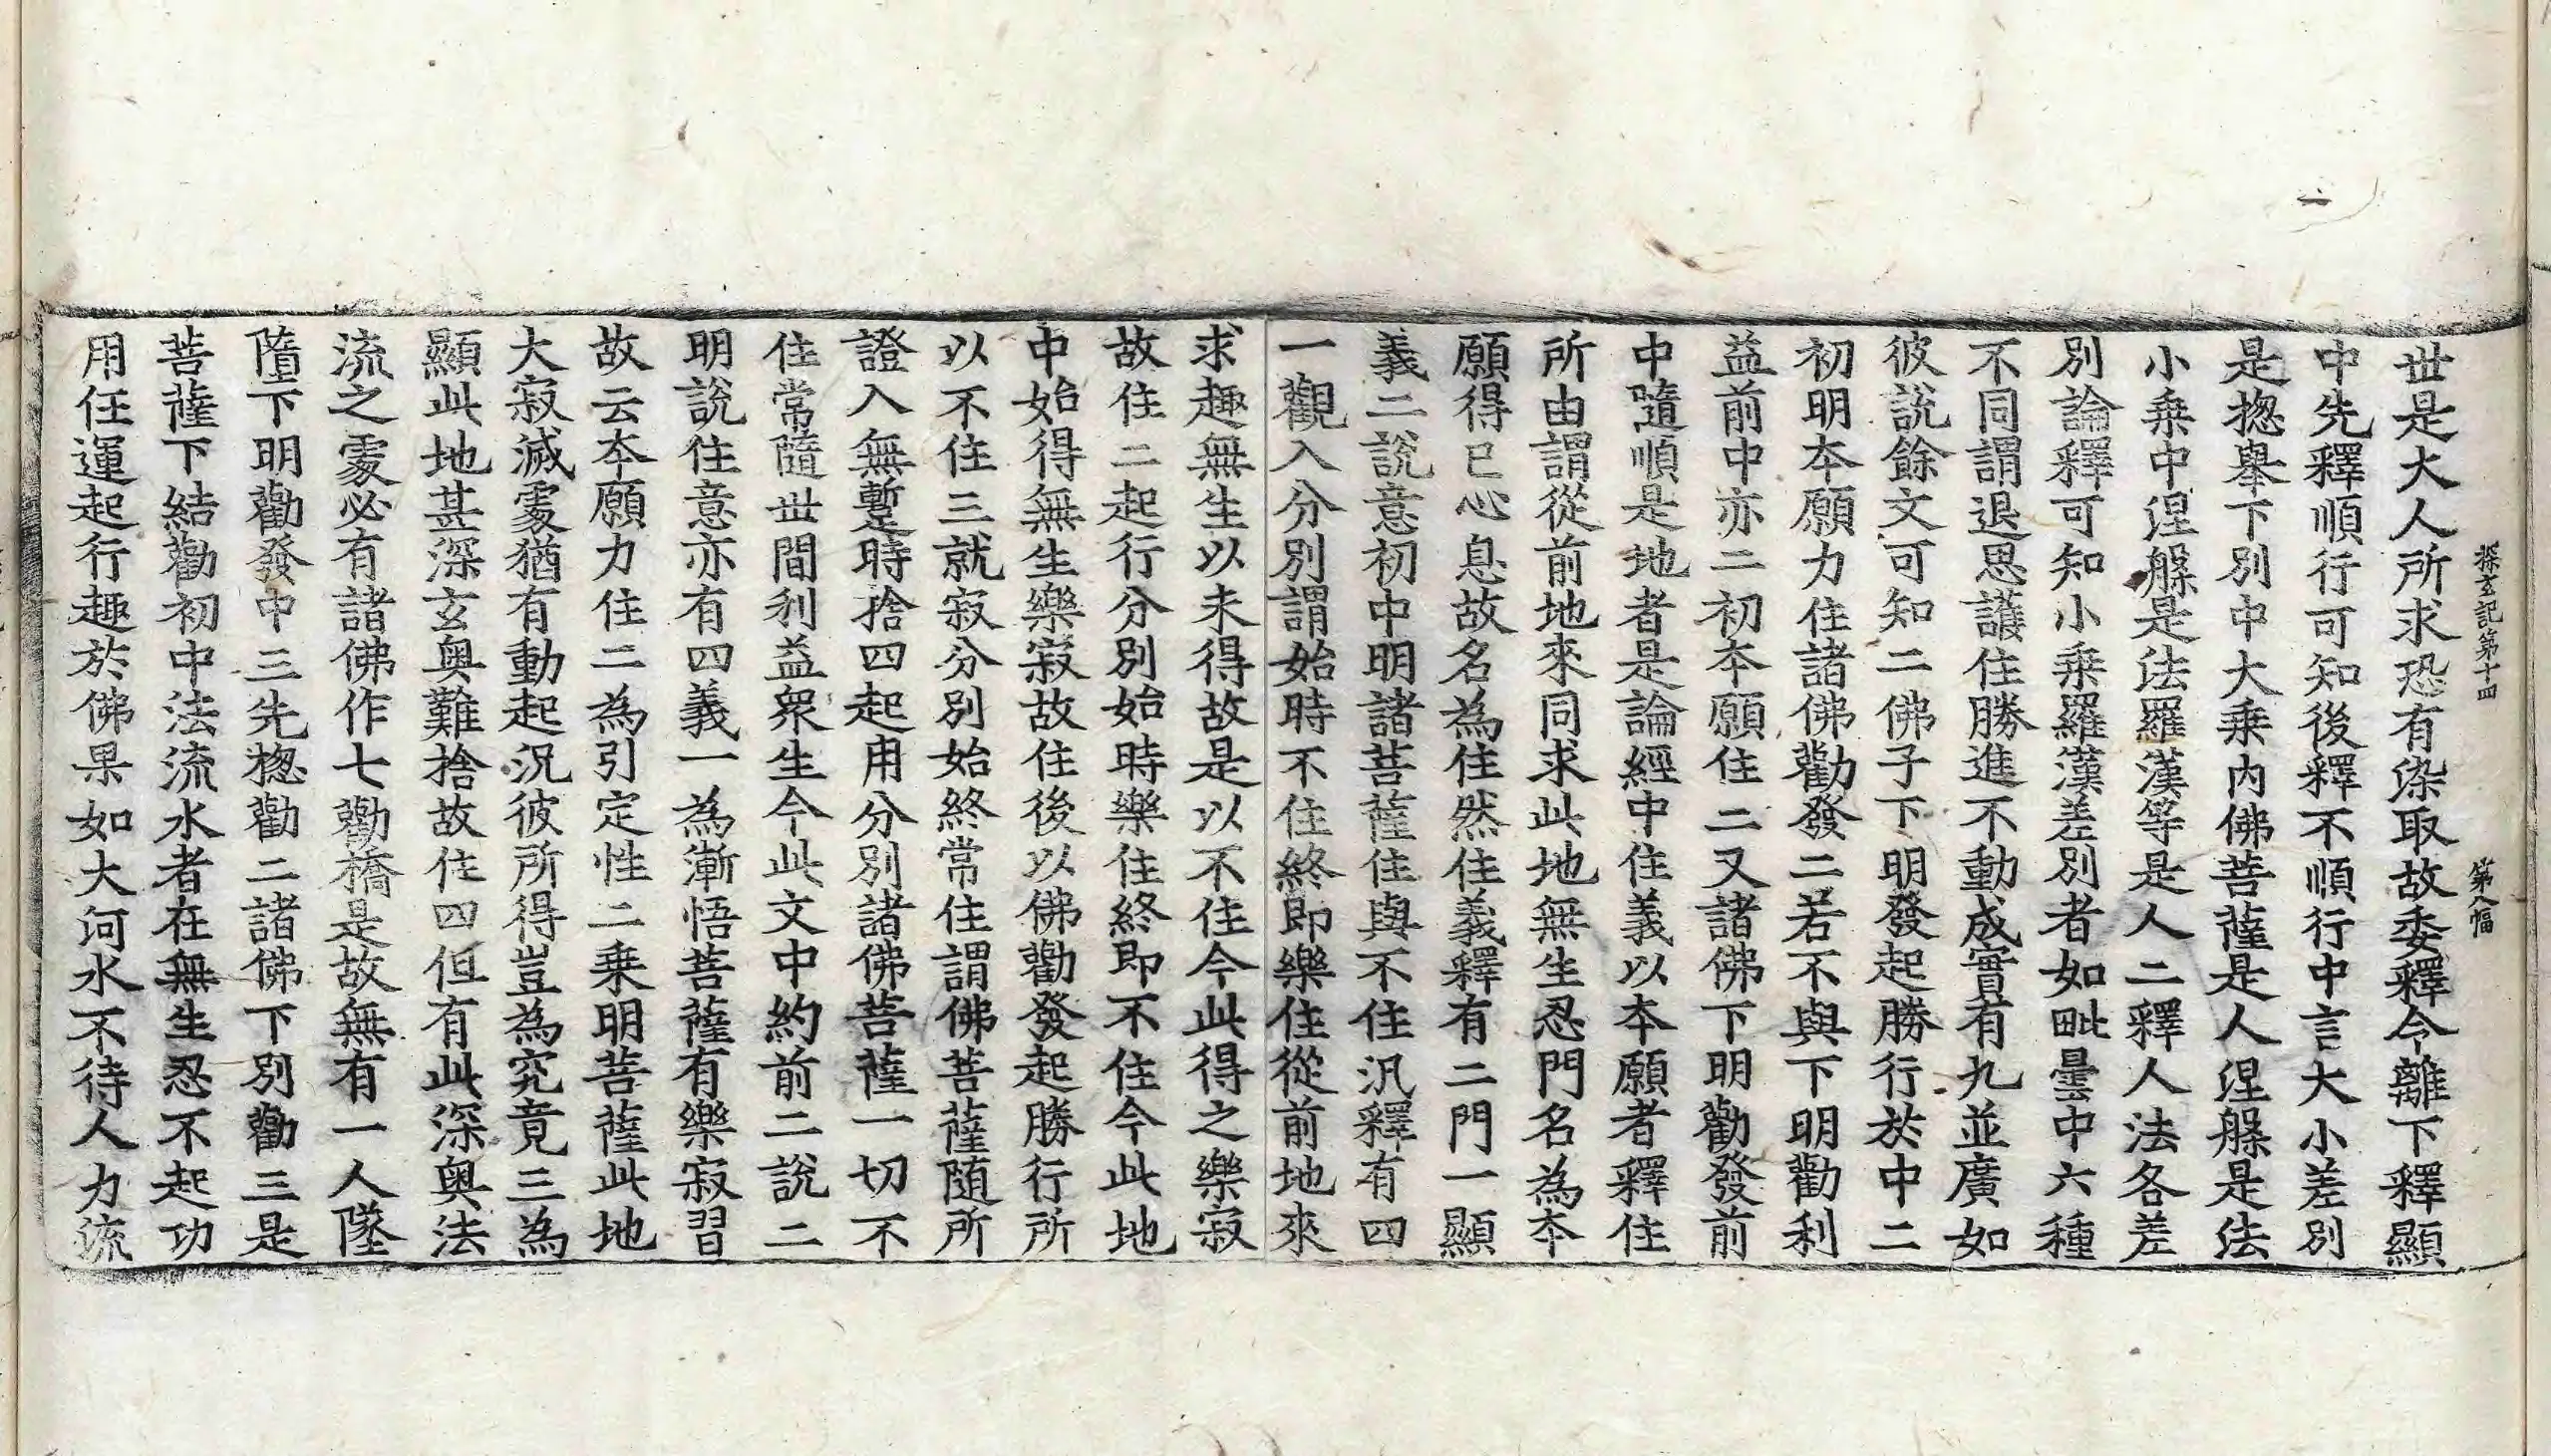 探玄記第十四 第八幅
世是大人所求恐有染取故委釋令離下釋顯
中先釋順行可知後釋不順行中言大小差別
是揔舉下別中大乗内佛菩薩是人涅槃是法
小乗中涅槃是法羅漢等是人二釋人法各差
別論釋可知小乗羅漢差別者如毗曇中六種
不同謂退思護住勝進不動成實有九並廣如
彼說餘文可知二佛子下明發起勝行於中二
初明本願力住諸佛勸發二若不與下明勸利
益前中亦二初本願住二又諸佛下明勸發前
中隨順是地者是論經中住義以本願者釋住
所由謂從前地來同求此地無生忍門名為本
願得已心息故名為住然住義釋有二門一顯
義二說意初中明諸菩薩住與不住汎釋有四
一觀入分別謂始時不住終即樂住從前地來
求趣無生以未得故是以不住今此得之樂寂
故住二起行分別始時樂住終即不住今此地
中始得無生樂寂故住後以佛勸發起勝行所
以不住三就寂分別始終常住謂佛菩薩随所
證入無蹔時捨四起用分別諸佛菩薩一切不
住常隨世間利益衆生今此文中約前二說二
明說住意亦有四義一為漸悟菩薩有樂寂習
故云本願力住二為引定性二乗明菩薩此地
大寂滅處猶有動起況彼所得豈為究竟三為
顯此地甚深玄奥難捨故住四但有此深奥法
流之處必有諸佛作七勸橋是故無有一人墜
墮下明勸發中三先揔勸二諸佛下別勸三是
菩薩下結勸初中法流水者在無生忍不起功
用任運起行趣於佛果如大河水不待人力流